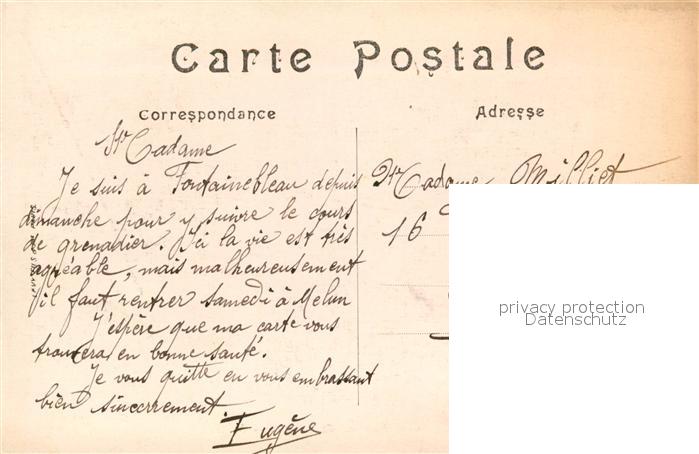 Carte Postale
Correspondance
Adresse
Madame
Je suis à Fontainebleau depuis
dimanche pour y suivre le cours
de grenadier. Ici la vie est très
agréable, mais malheureusement
il faut rentrer samedi à Melun
J'espère que ma carte vous
trouvera en bonne santé.
Je vous quitte en vous embrassant
bien sincerrement.
Eugène
Madame Milliet
16
privacy protection
Datenschutz